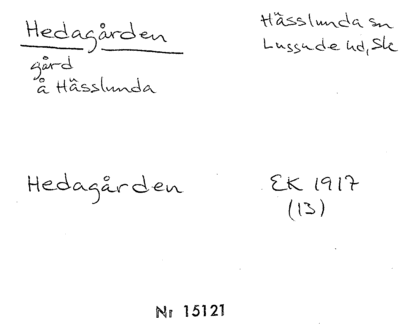 Hedagården
Hässlunda sn
Luggude hd, Sk
gård
å Hässlunda
Hedagården
EK 1917
(13)
Nr 15121